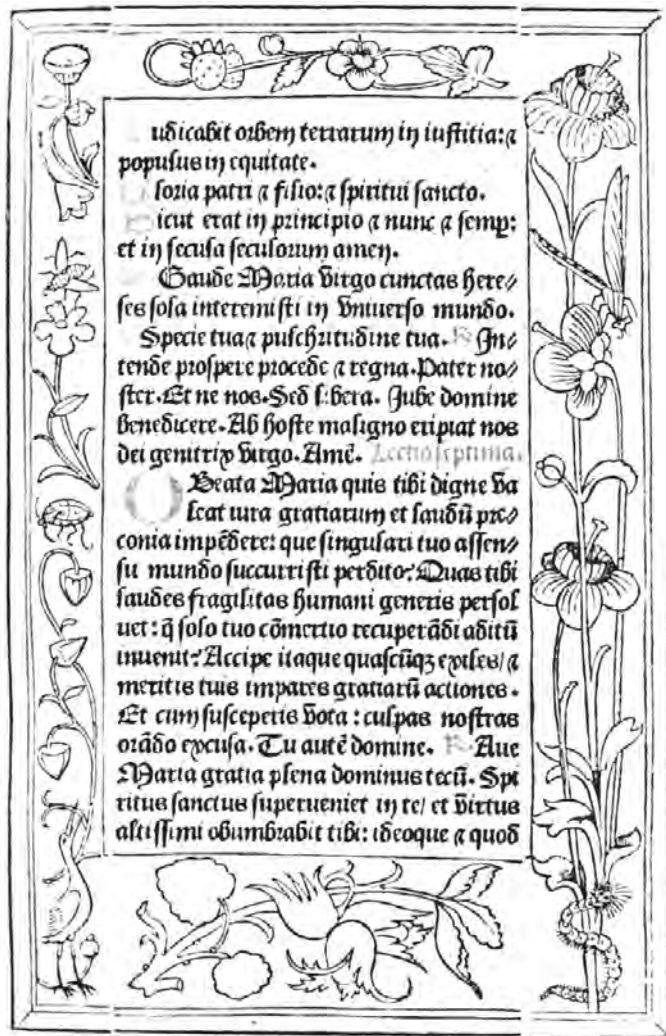 udicabit orbem terrarum in iustitia: ⁊
populus in equitate.
loria patri ⁊ filio: ⁊ spiritui sancto.
icut erat in principio ⁊ nunc ⁊ semp̱:
et in secula seculorum amen.
Gaude Maria virgo cunctas here-
ses sola interemisti in vniuerso mundo.
Specie tua ⁊ pulchritudine tua. R In-
tende prospere procede ⁊ regna. Pater no-
ster. Et ne nos. Sed libera. Jube domine
benedicere. Ab hoste maligno eripiat nos
dei genitrix virgo. Amē. Lectio septima.
O Beata Maria quis tibi digne va
leat iura gratiarum et laudū pre-
conia impēdere: que singulari tuo assen-
su mundo succurristi perdito? Quas tibi
laudes fragilitas humani generis persol
uet: q̄ solo tuo cōmertio recuperādi aditū
inuenit? Accipe itaque quascūqꝫ exiles/ ⁊
meritis tuis impares gratiarū actiones.
Et cum susceperis vota: culpas nostras
orādo excusa. Tu autē domine. R Aue
Maria gratia plena dominus tecū. Spi
ritus sanctus superueniet in te/ et virtus
altissimi obumbrabit tibi: ideoque ⁊ quod